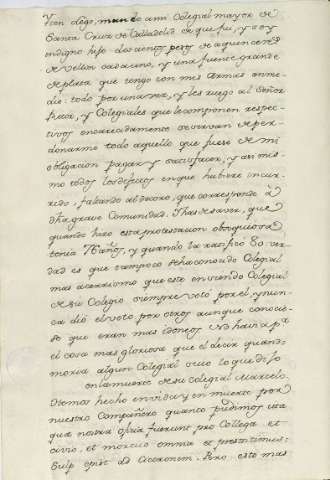 Ytten dejo, mando a mi Colegial mayor de
Santa Cruz de Valladolid de que fui, y soy
indigno hijo doscientos pesos de a quince rs
de vellon cada uno, y una fuente grande
de plata que tengo con mis Armas en me
dio: todo por una vez, y les ruego al Señor
Rector, y Colegiales que le componen respec-
tivos encarecidamente se sirvan de per-
donarme todo aquello que fuese de mi
obligacion pagar y satisfacer, y asi mis-
mo todos los defectos en que hubiere incur-
rido, faltando al decoro, que corresponde à
dha grave Comunidad. Y has de saver, que
quando hizo esta protestacion obsequiosa
tenia 78 años, y quando la ratificó 80 ver
dad es que tampoco se ha conocido Colegial
mas acerrimo que este en siendo Colegial
de su Colegio siempre votó por el, y nun-
ca dió el voto por otros aunque conocie-
se que eran mas idoneos. No hai a pa
el cosa mas gloriosa que el decir quando
moria algun Colegial suio lo que dijo
en la muerte de su Colegial Marcelo.
Hemos hecho en vida y en muerte por
nuestro Compañero quanto pudimos ita
qua nostra officia fuerunt pro Collega et
et vivo, et mortuo omnia ei prestitimus:
Sulp. epist. ad Ciceronem. Pero esto mas